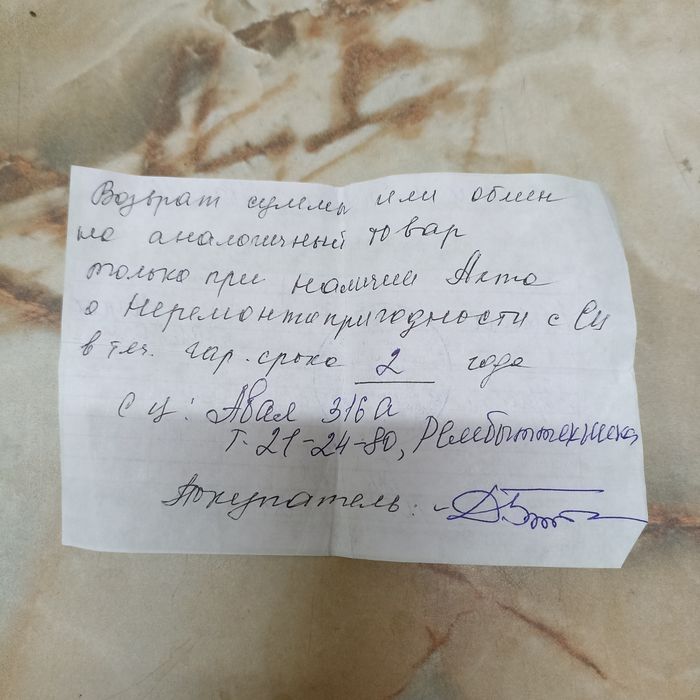 Возврат суммы или обмен
на аналогичный товар
только при наличии Акта
о Неремонтапригодности с СЦ
в теч. гар. срока 2 года
СЦ: Абая 316а
т. 21-24-80, Рембыттехника
Покупатель: -